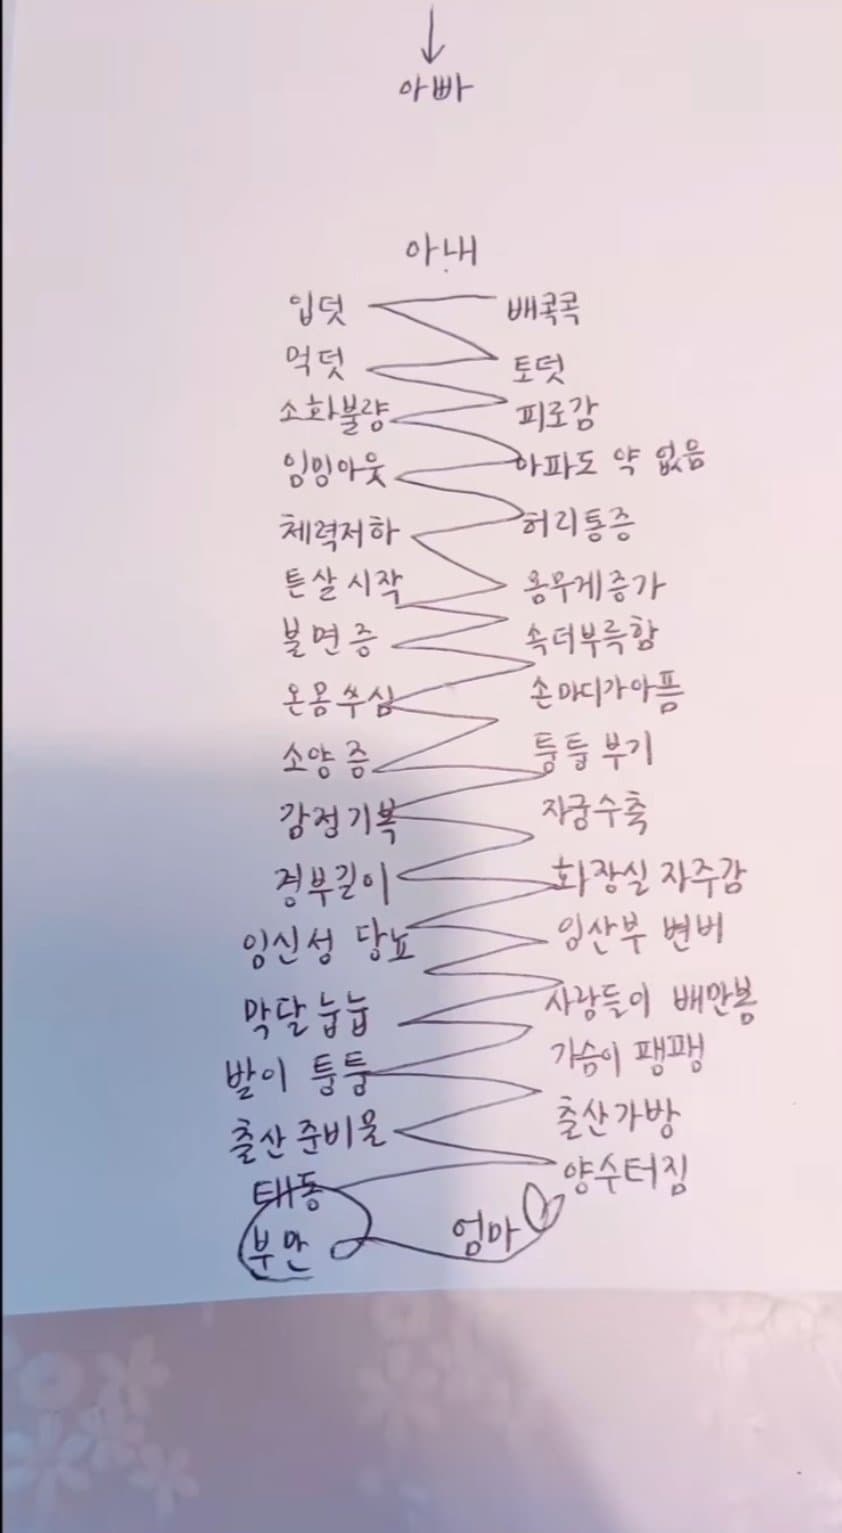 아빠
아내
입덧 배콕콕
먹덧 토덧
소화불량 피로감
임밍아웃 아파도 약 없음
체력저하 허리통증
튼살 시작 몸무게증가
불면증 속더부륵함
온몸쑤심 손마디가아픔
소양증 퉁퉁 부기
감정기복 자궁수축
경부길이 화장실 자주감
임신성 당뇨 임산부 변비
막달 눕눕 사람들이 배만봄
발이 퉁퉁 가슴이 팽팽
출산 준비물 출산가방
태동 양수터짐
부만 엄마